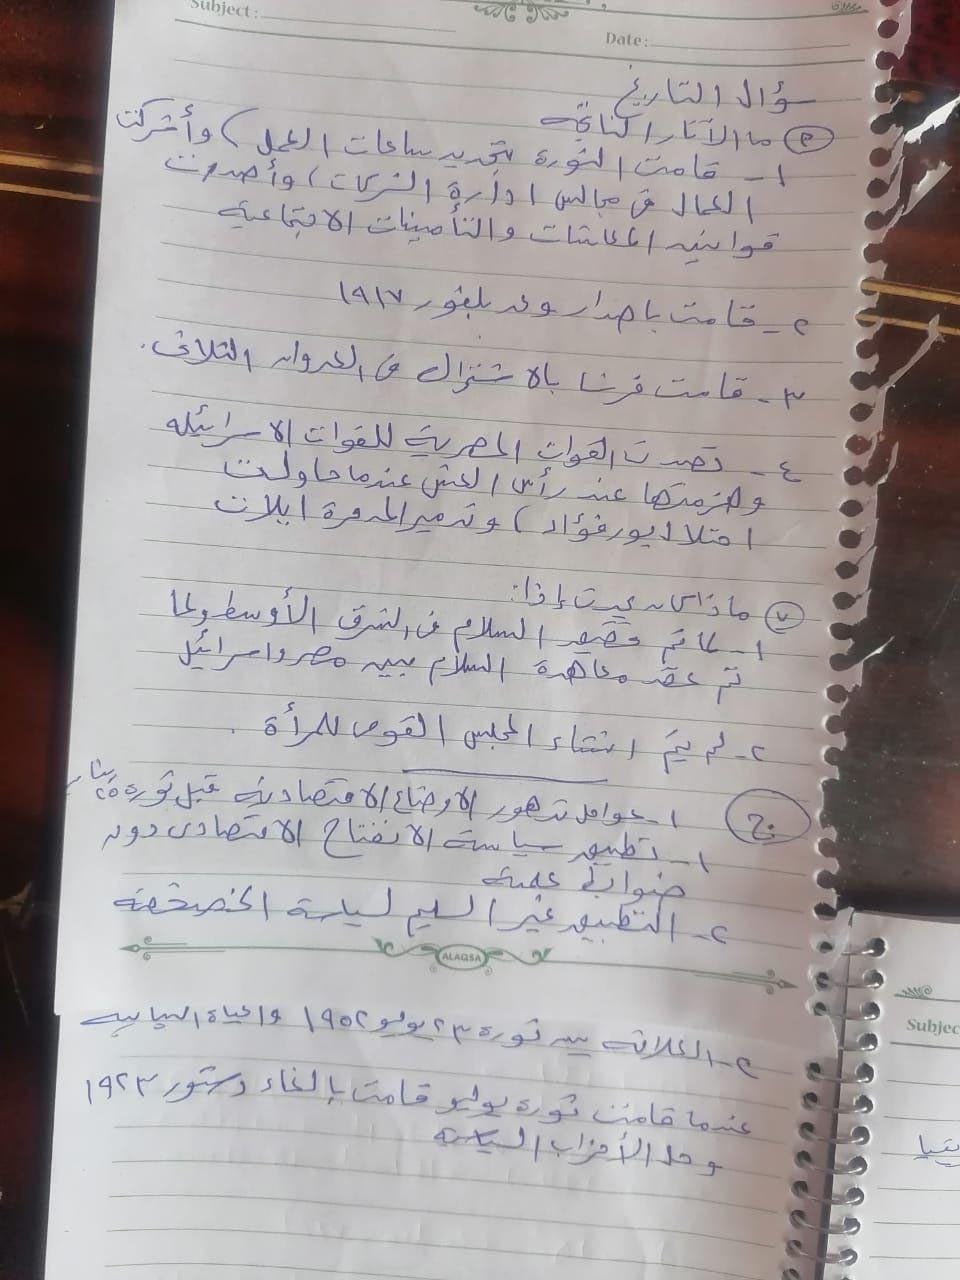 Subject:
Date:
سؤال التاريخ
(م) ما الآثار الناتجة
١- قامت الثورة بتحديد ساعات العمل) وأشركت
العمال فى مجالس ادارة الشركات) وأصدرت
قوانين المعاشات والتأمينات الاجتماعية
٢- قامت باصدار وعد بلفور ١٩١٧
٣- قامت فرنسا بالاشتراك فى العدوان الثلاثى.
٤- تصدت القوات المصرية للقوات الاسرائيلية
وهزمتها عند رأس العش عندما حاولت
احتلال بورفؤاد) وتدمير المدمرة ايلات
ماذا يحدث إذا:
١- لما تم السلام فى الشرق الأوسط ولما
تم عقد معاهدة السلام بين مصر واسرائيل
٢- لم يتم انشاء المجلس القومى للمرأة.
(ج) ١- عوامل تدهور الاوضاع الاقتصادية قبل ثورة ٢٥ يناير
١- تطبيق سياسة الانفتاح الاقتصادى دون
ضوابط علمية
٢- التطبيق غير السليم لسياسة الخصخصة
ALAQSA
Subjec
٢- العلاقة بين ثورة ٢٣ يوليو ١٩٥٢ والحياة النيابية
عندما قامت ثورة يوليو قامت بإلغاء دستور ١٩٢٣
وحل الأحزاب السياسية